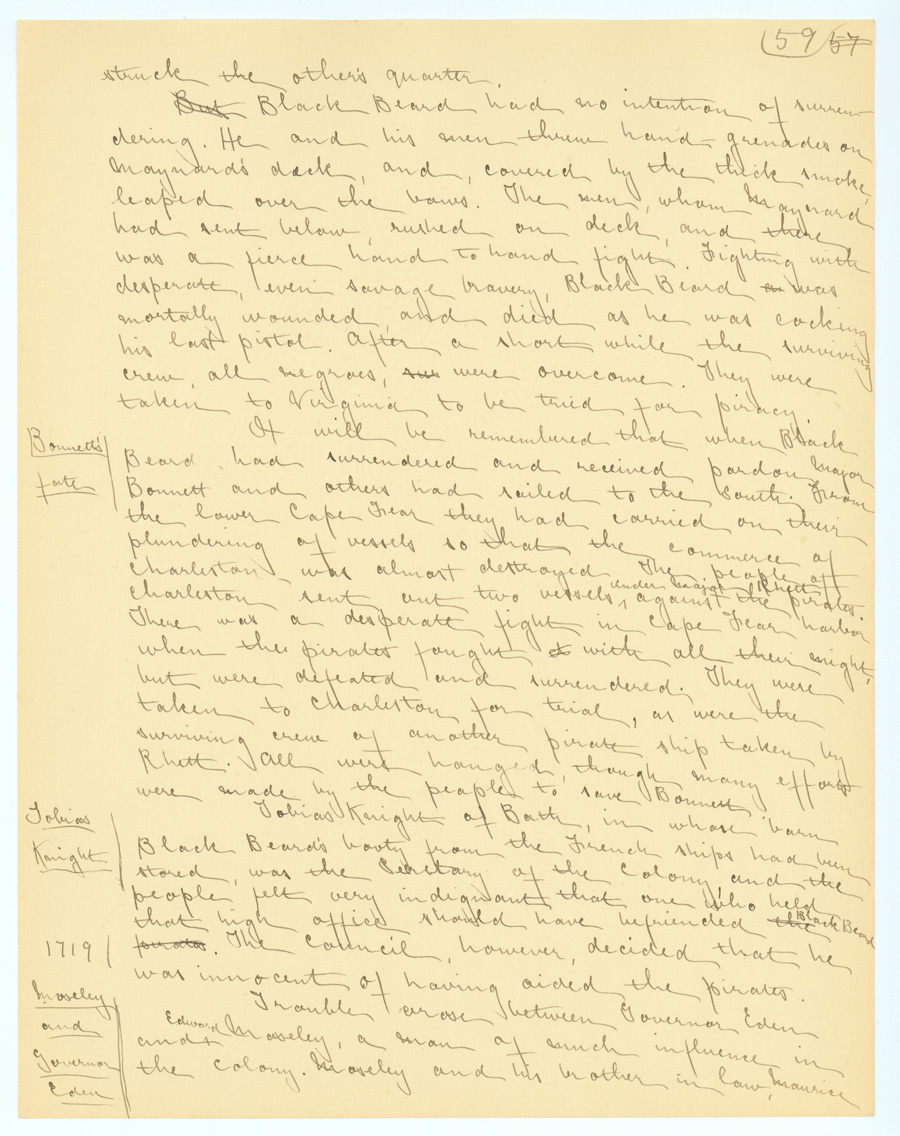 (59) 57
struck the other's quarter.
But Black Beard had no intention of surren-
dering. He and his men threw hand-grenades on
Maynard's deck, and, covered by the thick smoke,
leaped over the bows. The men, whom Maynard
had sent below, rushed on deck, and there
was a fierce hand to hand fight. Fighting with
desperate, even savage bravery, Black Beard was
mortally wounded, and died as he was cocking
his last pistol. After a short while the surviving
crew, all negroes, sur were overcome. They were
taken to Virginia to be tried for piracy.
Bonnett's
fate
It will be remembered that when Black
Beard had surrendered and received pardon Major
Bonnett and others had sailed to the South. From
the lower Cape Fear they had carried on their
plundering of vessels so that the commerce of
Charleston was almost destroyed. The people of
under Major Rhett
Charleston sent out two vessels, against the pirates.
There was a desperate fight in Cape Fear harbor
when the pirates fought with all their might,
but were defeated and surrendered. They were
taken to Charleston for trial, as were the
surviving crew of another pirate ship taken by
Rhett. All were hanged, though many efforts
were made by the people to save Bonnett.
Tobias
Knight
Tobias Knight of Bath, in whose barn
Black Beard's booty from the French ships had been
stored, was the Secretary of the Colony, and the
people felt very indignant that one who held
that high office should have befriended the Black Beard
pirates. The Council, however, decided that he
1719
was innocent of having aided the pirates.
Moseley
and
Governor
Eden
Trouble arose between Governor Eden
and Edward Moseley, a man of much influence in
the colony. Moseley and his brother in law, Maurice